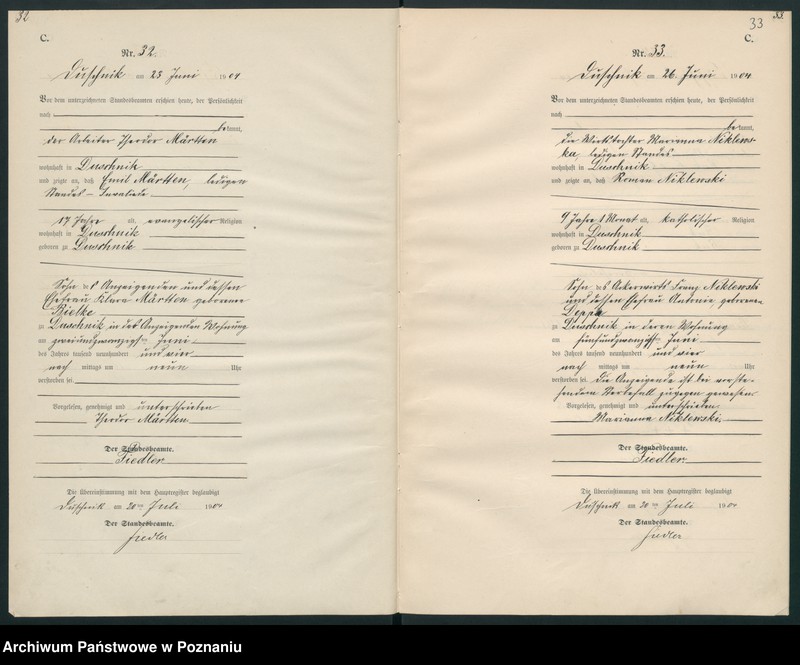 32
C.
Nr. 32.
Duschnik am 23 Juni 1904
Vor dem unterzeichneten Standesbeamten erschien heute, der Persönlichkeit
nach
bekannt,
der Arbeiter Theodor Märtten
wohnhaft in Duschnik
und zeigte an, daß Emil Märtten, ledigen
Standes - Invalide
17 Jahre alt, evangelischer Religion
wohnhaft in Duschnik
geboren zu Duschnik
Sohn des Anzeigenden und dessen
Ehefrau Klara Märtten geborene
Bielke
zu Duschnik in des Anzeigenden Wohnung
am zweiundzwanzigsten Juni
des Jahres tausend neunhundert und vier
nach mittags um neun Uhr
verstorben sei
Vorgelesen, genehmigt und unterschrieben
Theodor Märtten
Der Standesbeamte.
Fiedler
Die Übereinstimmung mit dem Hauptregister beglaubigt
Duschnik am 20ten Juli 1904
Der Standesbeamte.
Fiedler
33
33.
C.
Nr. 33.
Duschnik am 26. Juni 1904
Vor dem unterzeichneten Standesbeamten erschien heute, der Persönlichkeit
nach
bekannt,
die Wirtstochter Marianna Niklews-
ka, ledigen Standes
wohnhaft in Duschnik
und zeigte an, daß Roman Niklewski
9 Jahre 1 Monat alt, katholischer Religion
wohnhaft in Duschnik
geboren zu Duschnik
Sohn des Ackerwirts Franz Niklewski
und dessen Ehefrau Antonie geborenen
Deppa
zu Duschnik in deren Wohnung
am fünfundzwanzigsten Juni
des Jahres tausend neunhundert und vier
nach mittags um neun Uhr
verstorben sei. Die Anzeigende ist bei vorste-
hendem Sterbefall zugegen gewesen
Vorgelesen, genehmigt und unterschrieben
Marianna Niklewski.
Der Standesbeamte.
Fiedler
Die Übereinstimmung mit dem Hauptregister beglaubigt
Duschnik am 20ten Juli 1904
Der Standesbeamte.
Fiedler
Archiwum Państwowe w Poznaniu